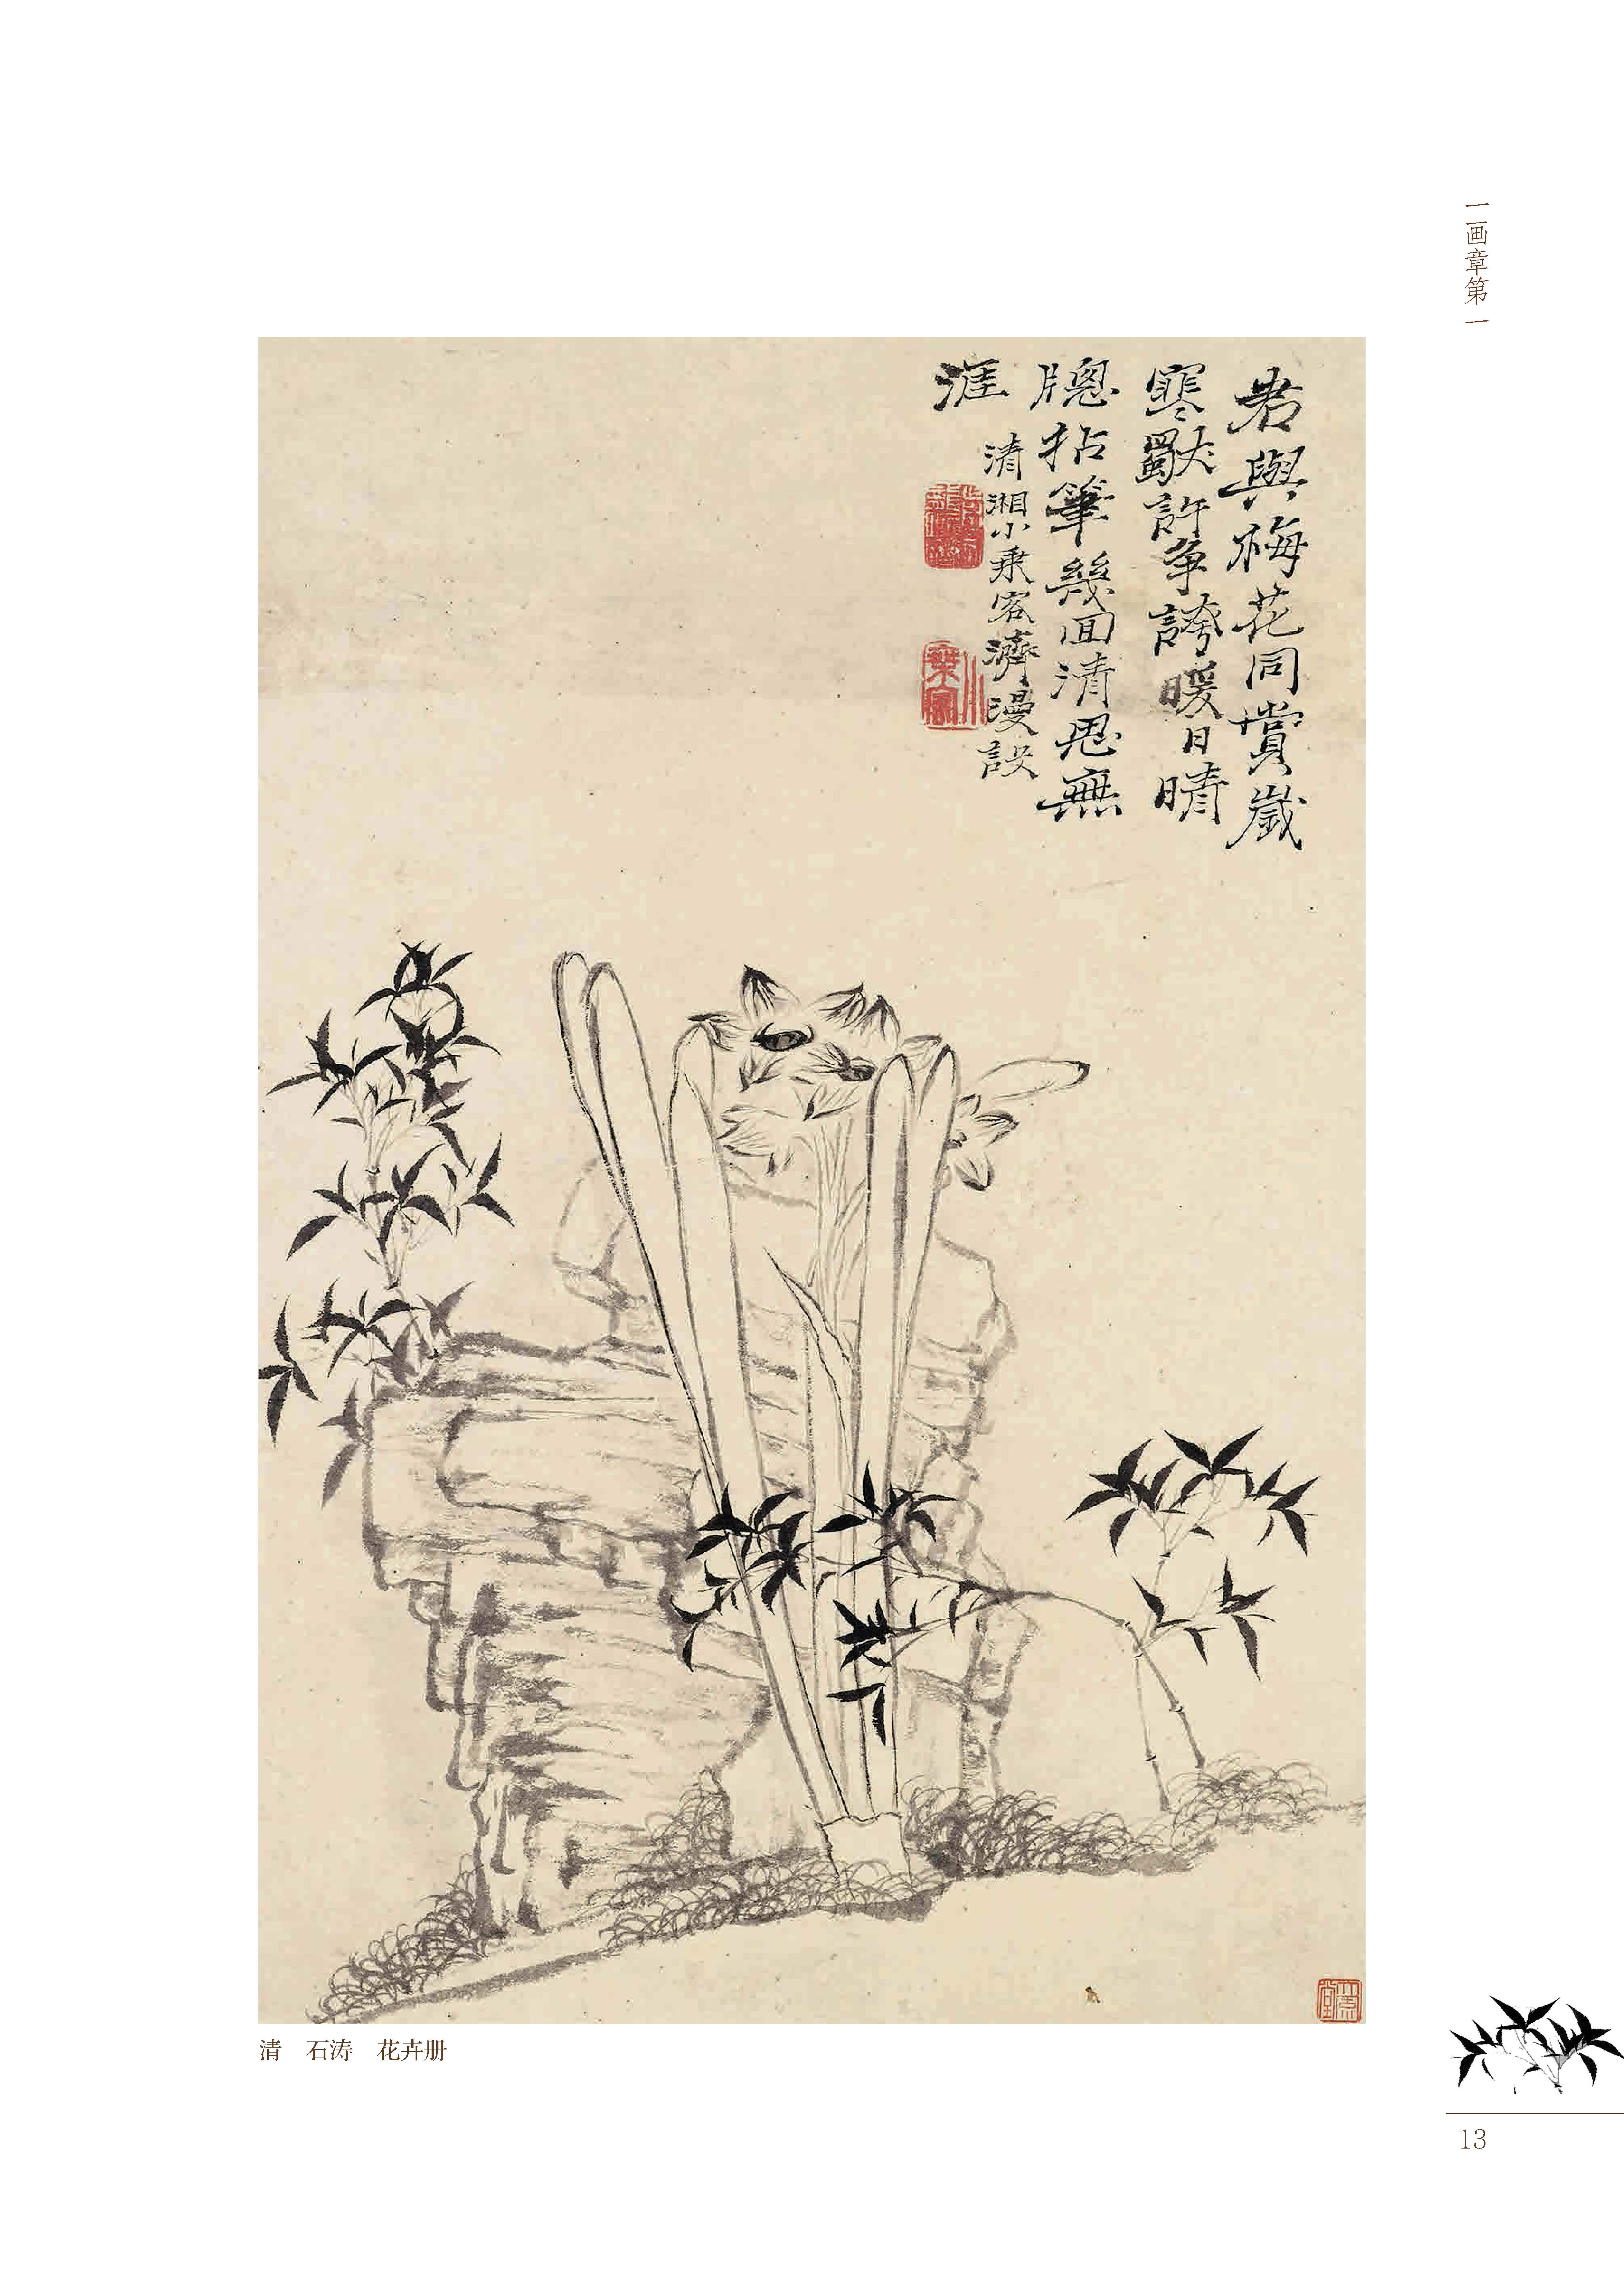 一画章第一
君與梅花同賞歲
寒獸許争誇暖日晴
牕拈筆幾回清思無
涯
清湘小乗客濟漫設
清 石涛 花卉册
13